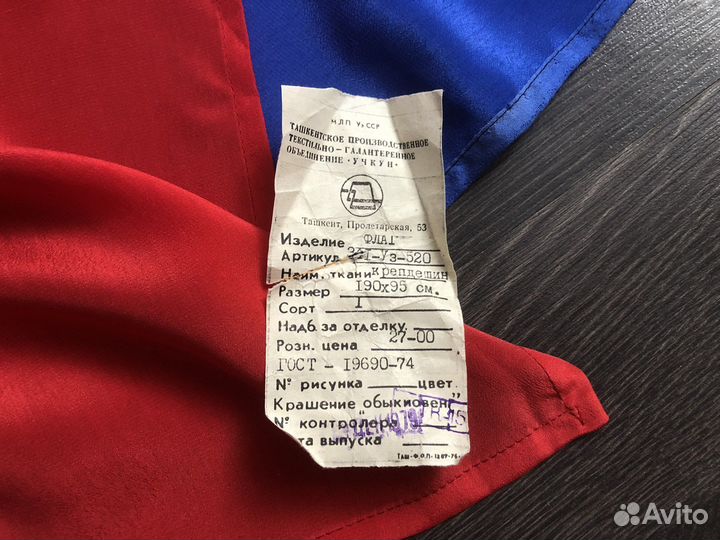 МЛП УзССР
ТАШКЕНТСКОЕ ПРОИЗВОДСТВЕННОЕ
ТЕКСТИЛЬНО-ГАЛАНТЕРЕЙНОЕ
ОБЪЕДИНЕНИЕ «УЧКУН»
Ташкент, Пролетарская, 53
Изделие ФЛАГ
Артикул 321-Уз-520
Наим. ткани крепдешин
Размер 190х95 см.
Сорт I
Надб. за отделку
Розн. цена 27-00
ГОСТ - 19690-74
№ рисунка цвет.
Крашение обыкновен
№ контролера
та выпуска
Avito